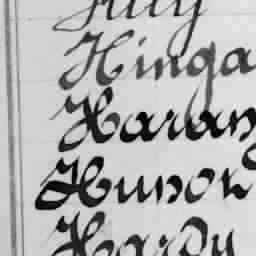 July
Hinga
Haran
Hunor
Hardy